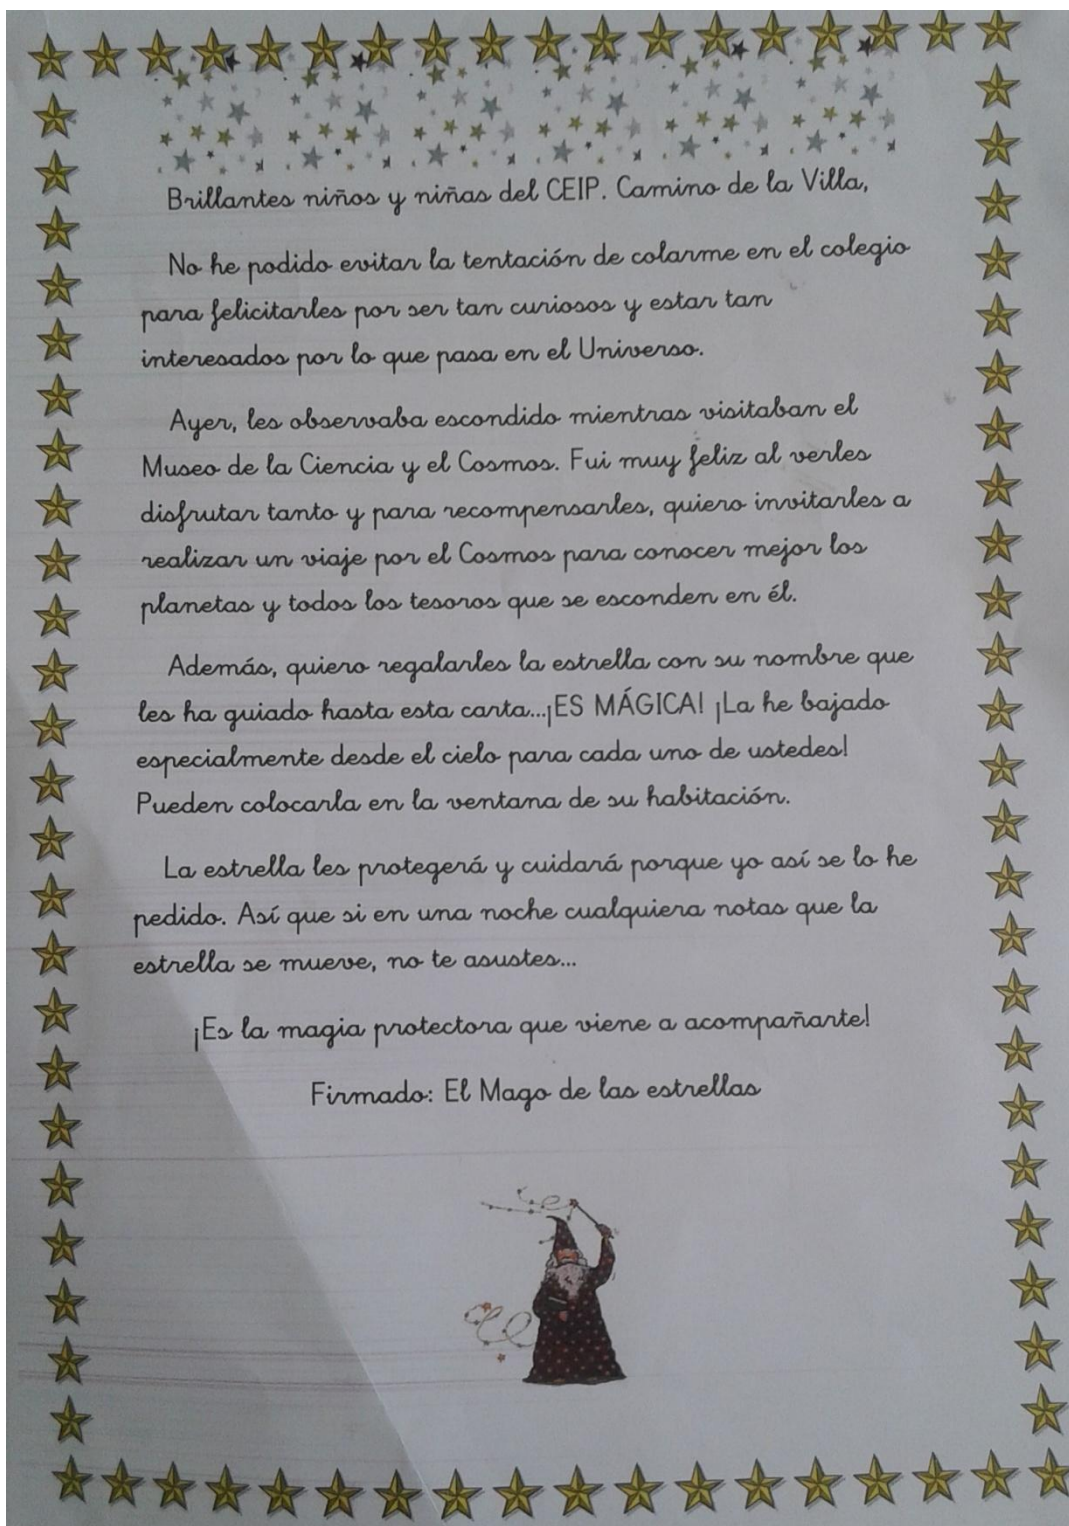 Brillantes niños y niñas del CEIP. Camino de la Villa,
No he podido evitar la tentación de colarme en el colegio
para felicitarles por ser tan curiosos y estar tan
interesados por lo que pasa en el Universo.
Ayer, les observaba escondido mientras visitaban el
Museo de la Ciencia y el Cosmos. Fui muy feliz al verles
disfrutar tanto y para recompensarles, quiero invitarles a
realizar un viaje por el Cosmos para conocer mejor los
planetas y todos los tesoros que se esconden en él.
Además, quiero regalarles la estrella con su nombre que
les ha guiado hasta esta carta...¡ES MÁGICA! ¡La he bajado
especialmente desde el cielo para cada uno de ustedes!
Pueden colocarla en la ventana de su habitación.
La estrella les protegerá y cuidará porque yo así se lo he
pedido. Así que si en una noche cualquiera notas que la
estrella se mueve, no te asustes...
¡Es la magia protectora que viene a acompañarte!
Firmado: El Mago de las estrellas